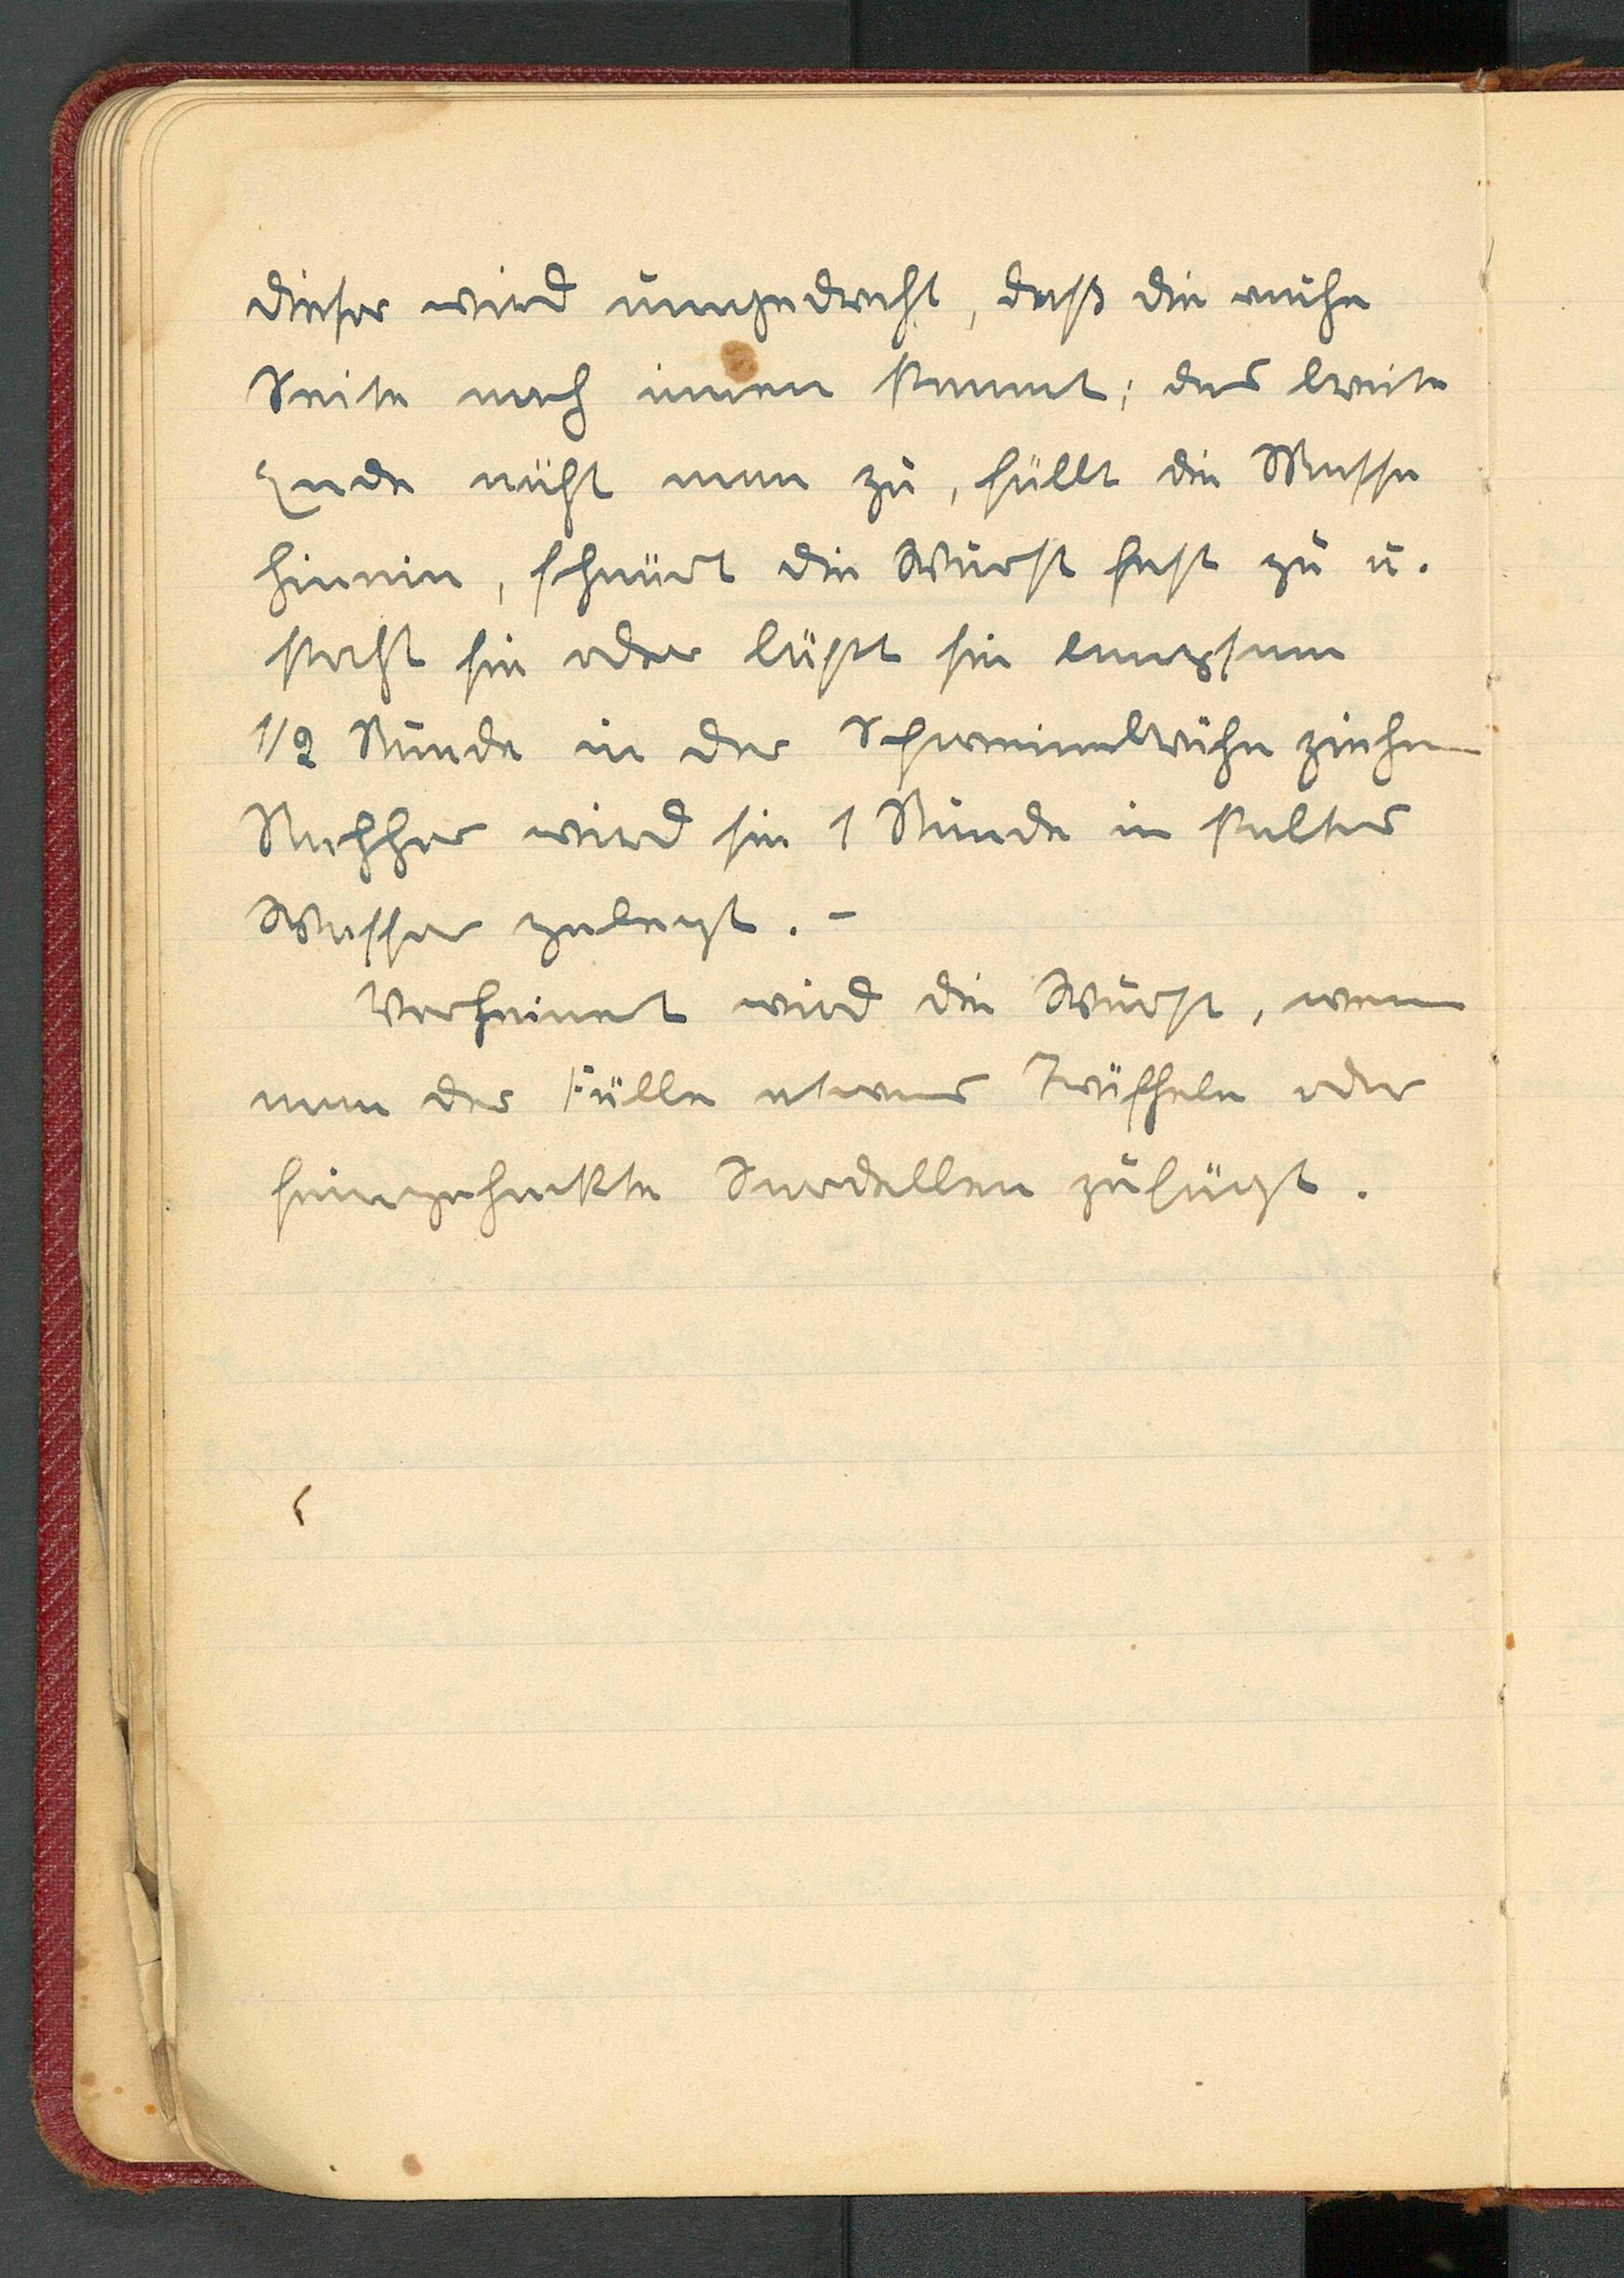 dieser wird umgedreht, daß die rauhe
Seite nach innen kommt; das breite
Ende näht man zu, füllt die Masse
hinein, schnürt die Wurst fest zu u.
kocht sie oder läßt sie langsam
1/2 Stunde in der Schweinebrühe ziehen
Nachher wird sie 1 Stunde in kaltes
Wasser gelegt. -
Verfeinert wird die Wurst, wenn
man der Fülle etwas Trüffeln oder
feingehackte Sardellen zufügt.